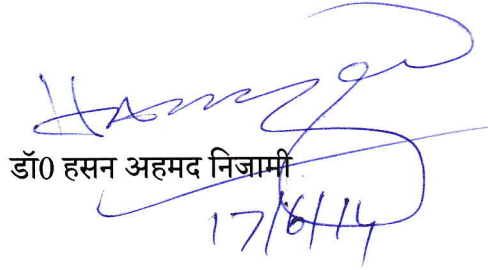 डॉ0 हसन अहमद निजामी
17/6/14